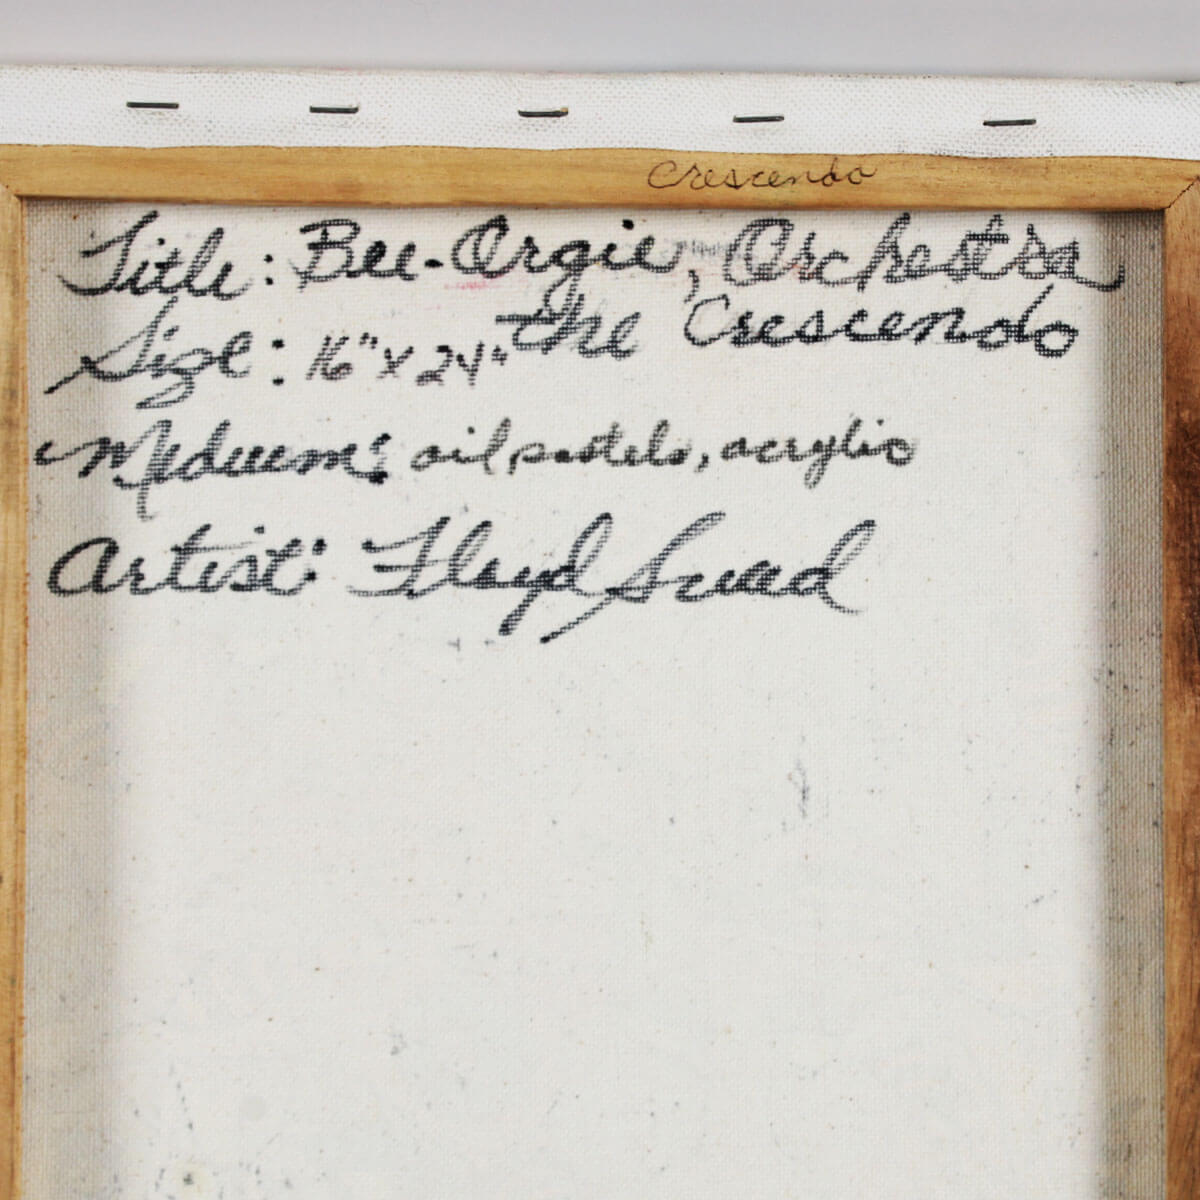 Crescendo
Title: Bee-Orgie, Orchestra
the Crescendo
Size: 16" x 24"
Medium: oil pastels, acrylic
Artist: Floyd Snead